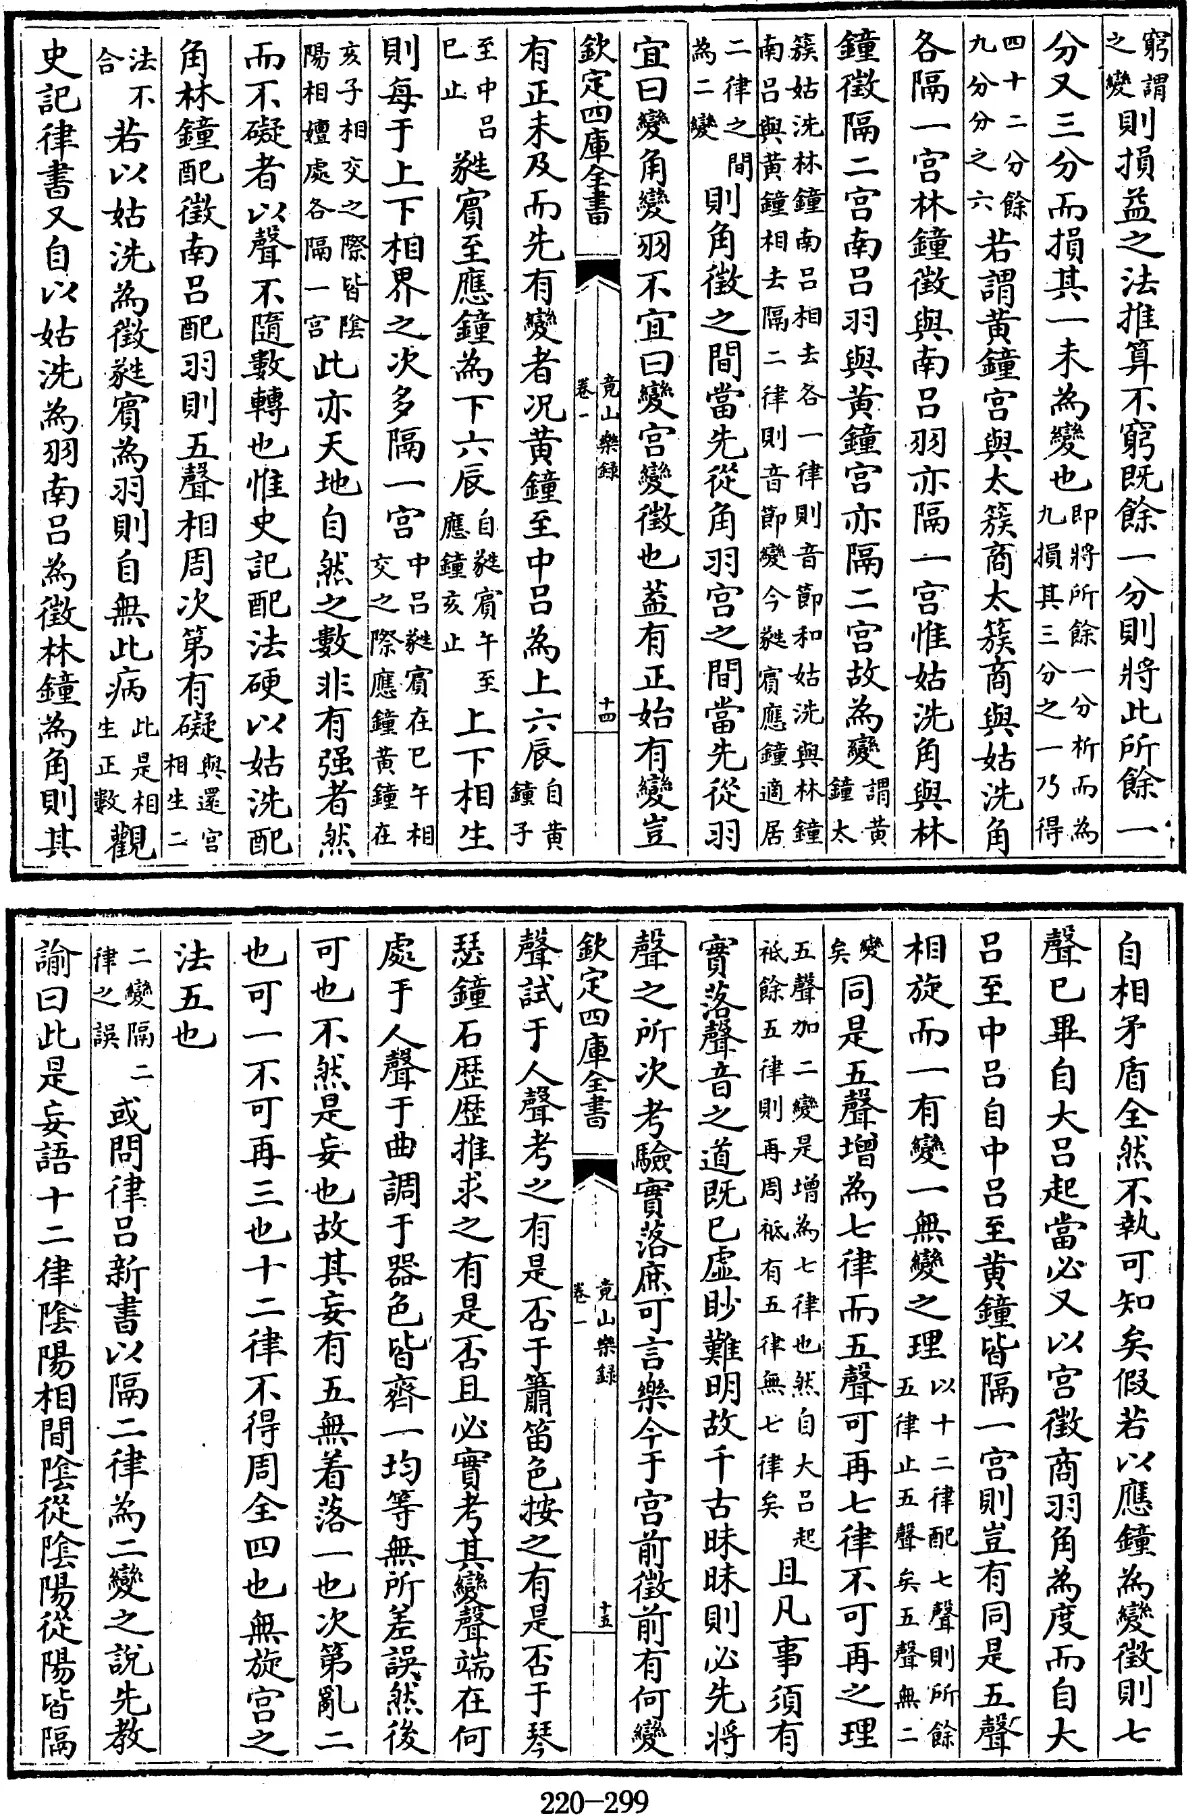 窮謂之變則損益之法推算不窮既餘一分則將此所餘一
分又三分而損其一未為變也即將所餘一分析而為九損其三分之一乃得
四十二分餘九分分之六若謂黄鐘宫與太簇商太簇商與姑洗角
各隔一宫林鐘徵與南吕羽亦隔一宫惟姑洗角與林
鐘徵隔二宫南吕羽與黄鐘宫亦隔二宫故為變謂黄鐘太
簇姑洗林鐘南吕相去各一律則音節和姑洗與林鐘南吕與黄鐘相去隔二律則音節變今蕤賓應鐘適居
二律之間為二變則角徵之間當先從角羽宫之間當先從羽
宜曰變角變羽不宜曰變宫變徵也葢有正始有變豈
欽定四庫全書 竟山樂録 卷一 十四
有正未及而先有變者况黄鐘至中吕為上六辰自黄鐘子
至中吕巳止蕤賓至應鐘為下六辰自蕤賓午至應鐘亥止上下相生
則每于上下相界之次多隔一宫中吕蕤賓在巳午相交之際應鐘黄鐘在
亥子相交之際皆陰陽相嬗處各隔一宫此亦天地自然之數非有强者然
而不礙者以聲不隨數轉也惟史記配法硬以姑洗配
角林鐘配徵南吕配羽則五聲相周次第有礙與還宫相生二
法不合若以姑洗為徵蕤賓為羽則自無此病此是相生正數觀
史記律書又自以姑洗為羽南吕為徵林鐘為角則其
自相矛盾全然不執可知矣假若以應鐘為變徵則七
聲已畢自大吕起當必又以宫徵商羽角為度而自大
吕至中吕自中吕至黄鐘皆隔一宫則豈有同是五聲
相旋而一有變一無變之理以十二律配七聲則所餘五律止五聲矣五聲無二
變矣同是五聲增為七律而五聲可再七律不可再之理
五聲加二變是增為七律也然自大吕起祗餘五律則再周祗有五律無七律矣且凡事須有
實落聲音之道既已虚眇難明故千古昧昧則必先將
聲之所次考驗實落庶可言樂今于宫前徵前有何變
欽定四庫全書 竟山樂録 卷一 十五
聲試于人聲考之有是否于簫笛色按之有是否于琴
瑟鐘石歴歴推求之有是否且必實考其變聲端在何
處于人聲于曲調于器色皆齊一均等無所差誤然後
可也不然是妄也故其妄有五無着落一也次第亂二
也可一不可再三也十二律不得周全四也無旋宫之
法五也
二變隔二律之誤或問律吕新書以隔二律為二變之説先教
諭曰此是妄語十二律陰陽相間陰從陰陽從陽皆隔
220-299